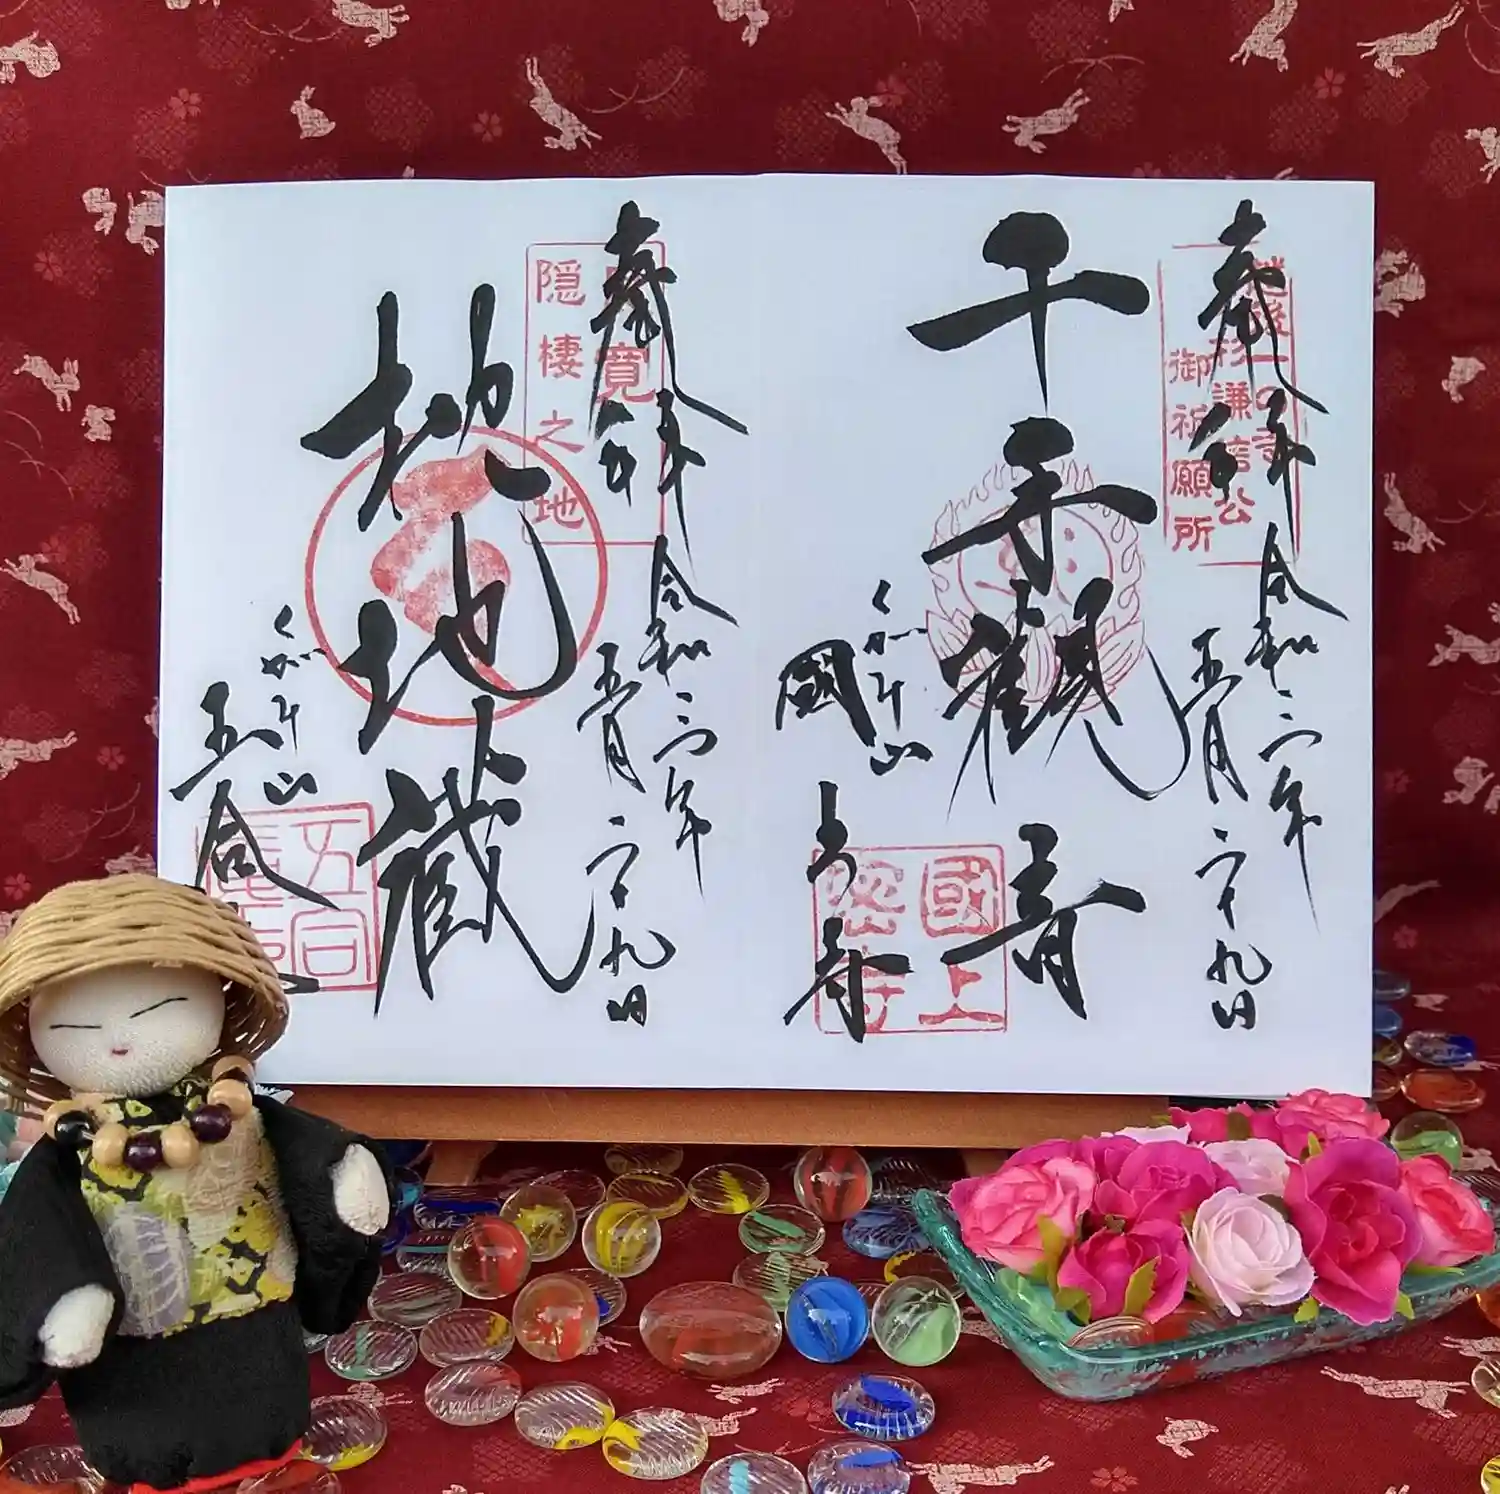 奉拝
越後一の寺
上杉謙信公
御祈願所
令和二年
五月二十九日
千手観音
くがみ山
國上寺
國上
密寺
奉拝
良寛
隠棲之地
令和二年
五月二十九日
地地蔵
くがみ山
五合庵
五合
庵印